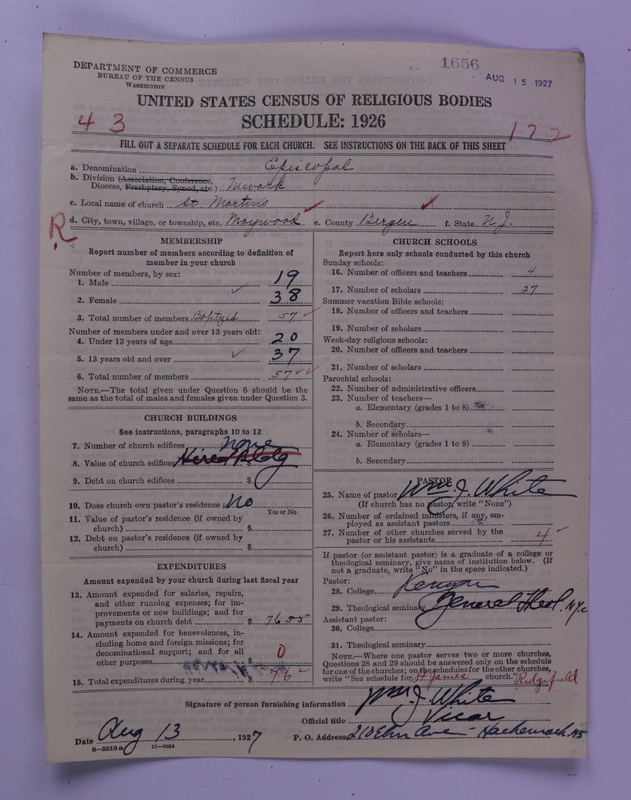 1656
AUG 15 1927
DEPARTMENT OF COMMERCE
BUREAU OF THE CENSUS
WASHINGTON
UNITED STATES CENSUS OF RELIGIOUS BODIES
SCHEDULE: 1926
43
172
FILL OUT A SEPARATE SCHEDULE FOR EACH CHURCH. SEE INSTRUCTIONS ON THE BACK OF THIS SHEET
a. Denomination Episcopal
b. Division (Association, Conference,
Diocese, Presbytery, Synod, etc.) Newark
c. Local name of church St Martins
d. City, town, village, or township, etc. Maywood e. County Bergen f. State N.J.
R
MEMBERSHIP
Report number of members according to definition of
member in your church
Number of members, by sex:
1. Male 19
2. Female 38
3. Total number of members Baptized 57
Number of members under and over 13 years old:
4. Under 13 years of age 20
5. 13 years old and over 37
6. Total number of members 57
NOTE.—The total given under Question 6 should be the
same as the total of males and females given under Question 3.
CHURCH BUILDINGS
See instructions, paragraphs 10 to 12
7. Number of church edifices none
8. Value of church edifices Hired Bldg
9. Debt on church edifices $
10. Does church own pastor's residence? No
Yes or No
11. Value of pastor's residence (if owned by
church) $
12. Debt on pastor's residence (if owned by
church) $
EXPENDITURES
Amount expended by your church during last fiscal year
13. Amount expended for salaries, repairs,
and other running expenses; for im-
provements or new buildings; and for
payments on church debt $ 76.55
14. Amount expended for benevolences, in-
cluding home and foreign missions; for
denominational support; and for all
other purposes $ 0
15. Total expenditures during year $ 76
CHURCH SCHOOLS
Report here only schools conducted by this church
Sunday schools:
16. Number of officers and teachers 4
17. Number of scholars 27
Summer vacation Bible schools:
18. Number of officers and teachers
19. Number of scholars
Week-day religious schools:
20. Number of officers and teachers
21. Number of scholars
Parochial schools:
22. Number of administrative officers
23. Number of teachers—
a. Elementary (grades 1 to 8)
b. Secondary
24. Number of scholars—
a. Elementary (grades 1 to 8)
b. Secondary
PASTOR
25. Name of pastor Wm J. White
(If church has no pastor, write "None")
26. Number of ordained ministers, if any, em-
ployed as assistant pastors
27. Number of other churches served by the
pastor or his assistants 4
If pastor (or assistant pastor) is a graduate of a college or
theological seminary, give name of institution below. (If
not a graduate, write "No" in the space indicated.)
Pastor:
28. College Kenyon
29. Theological seminary General Theol. N.Y.C
Assistant pastor:
30. College
31. Theological seminary
NOTE.—Where one pastor serves two or more churches,
Questions 28 and 29 should be answered only on the schedule
for one of the churches; on the schedules for the other churches,
write "See schedule for St James church." Ridgefield
Signature of person furnishing information Wm J. White
Official title Vicar
Date Aug 13, 1927 P. O. Address 210 Elm Ave - Hackensack NJ
6—5519a 11—9064